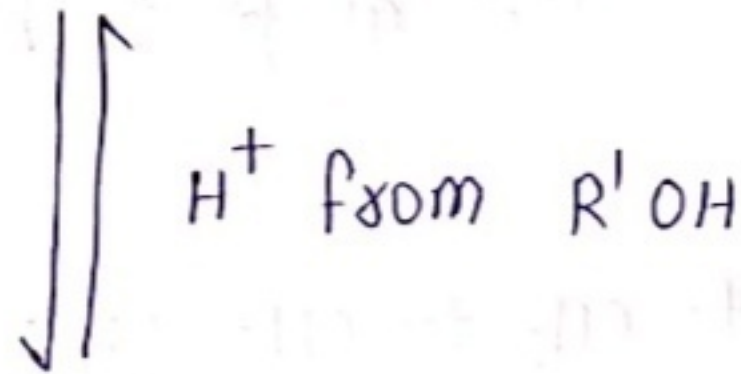 H⁺ from R'OH